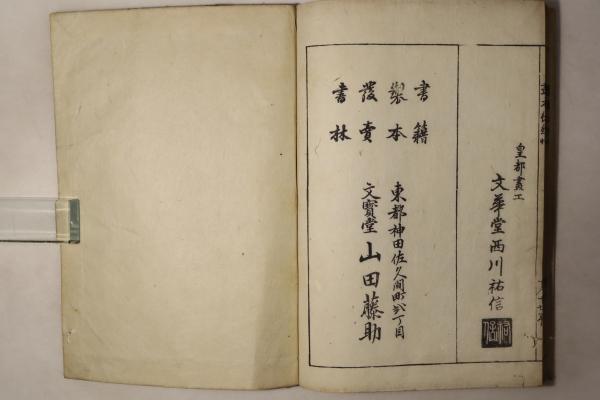 皇都畫工
文華堂西川祐信
書籍
製本
發賣
書林
東都神田佐久間町貳丁目
文寶堂山田藤助